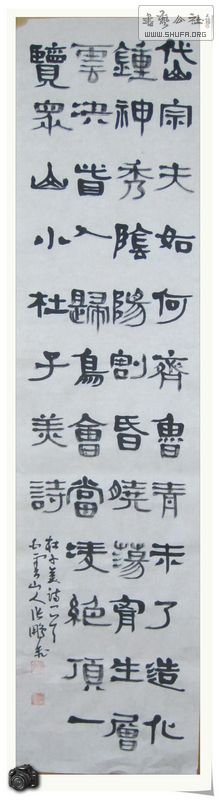 書藝公社
WWW.SHUFA.ORG
岱宗夫如何齊魯青未了造化
鍾神秀陰陽割昏曉蕩胷生層
雲決眥入歸鳥會當凌絕頂一
覽眾山小杜子美詩
杜子美詩一首
山人